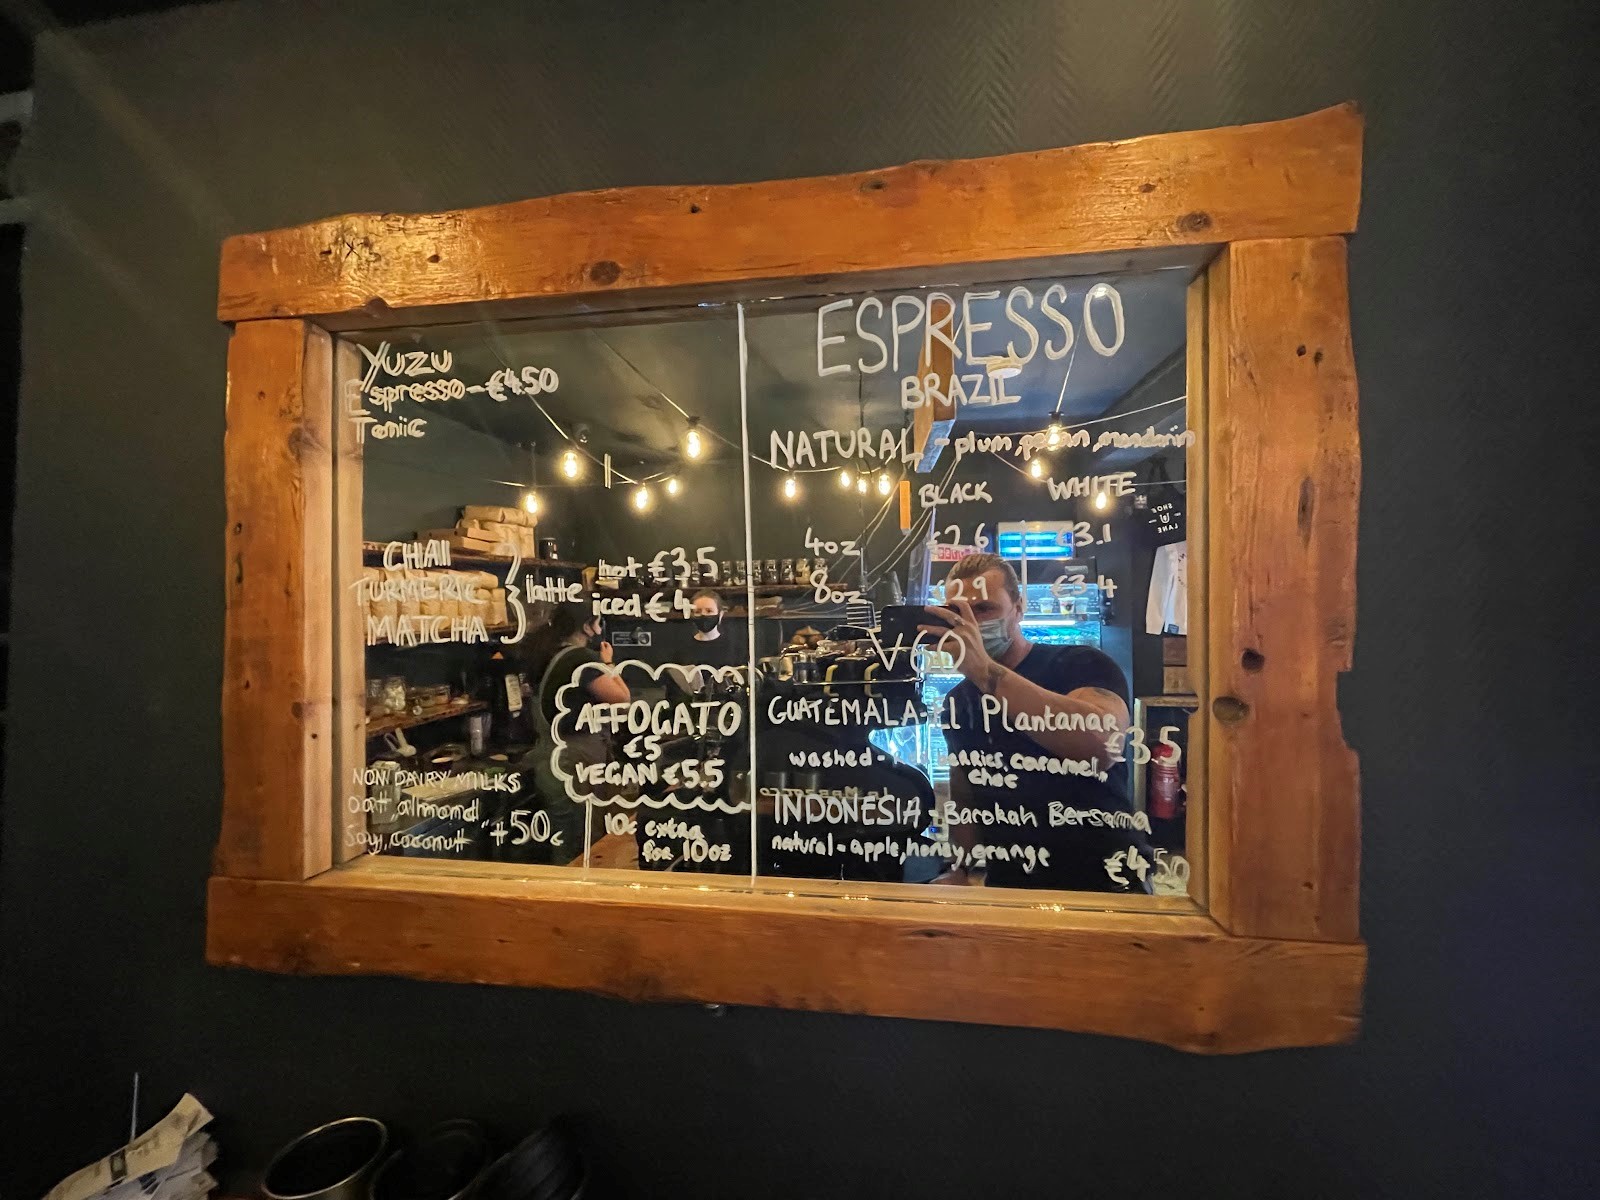 YUZU
Espresso - €4.50
Tonic
CHAI
TURMERIC
MATCHA
latte
hot €3.5
iced €4
AFFOGATO
€5
VEGAN €5.5
NON DAIRY MILKS
oat, almond
Soy, coconut +50c
10c extra
for 10oz
ESPRESSO
BRAZIL
NATURAL - plum, pecan, mandarin
BLACK WHITE
4oz €2.6 €3.1
8oz €2.9 €3.4
V60
GUATEMALA - El Plantanar
€3.5
washed - berries, caramel,
choc
INDONESIA - Barokah Bersama
natural - apple, honey, orange
€4.50
SHOE
LANE